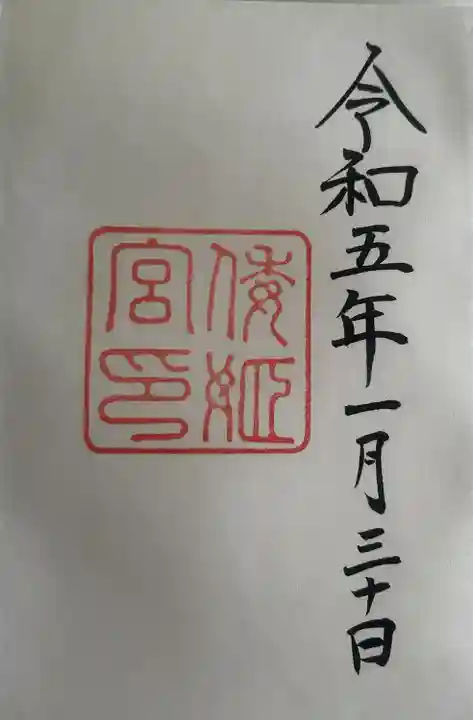 令和五年一月三十日
倭姫
宮印